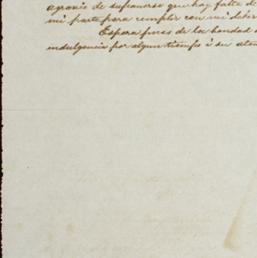 agravio de suponerse que hay falta de
mi parte para cumplir con mi deber
Espero pues de la bondad
indulgencia por algun tiempo i su aten